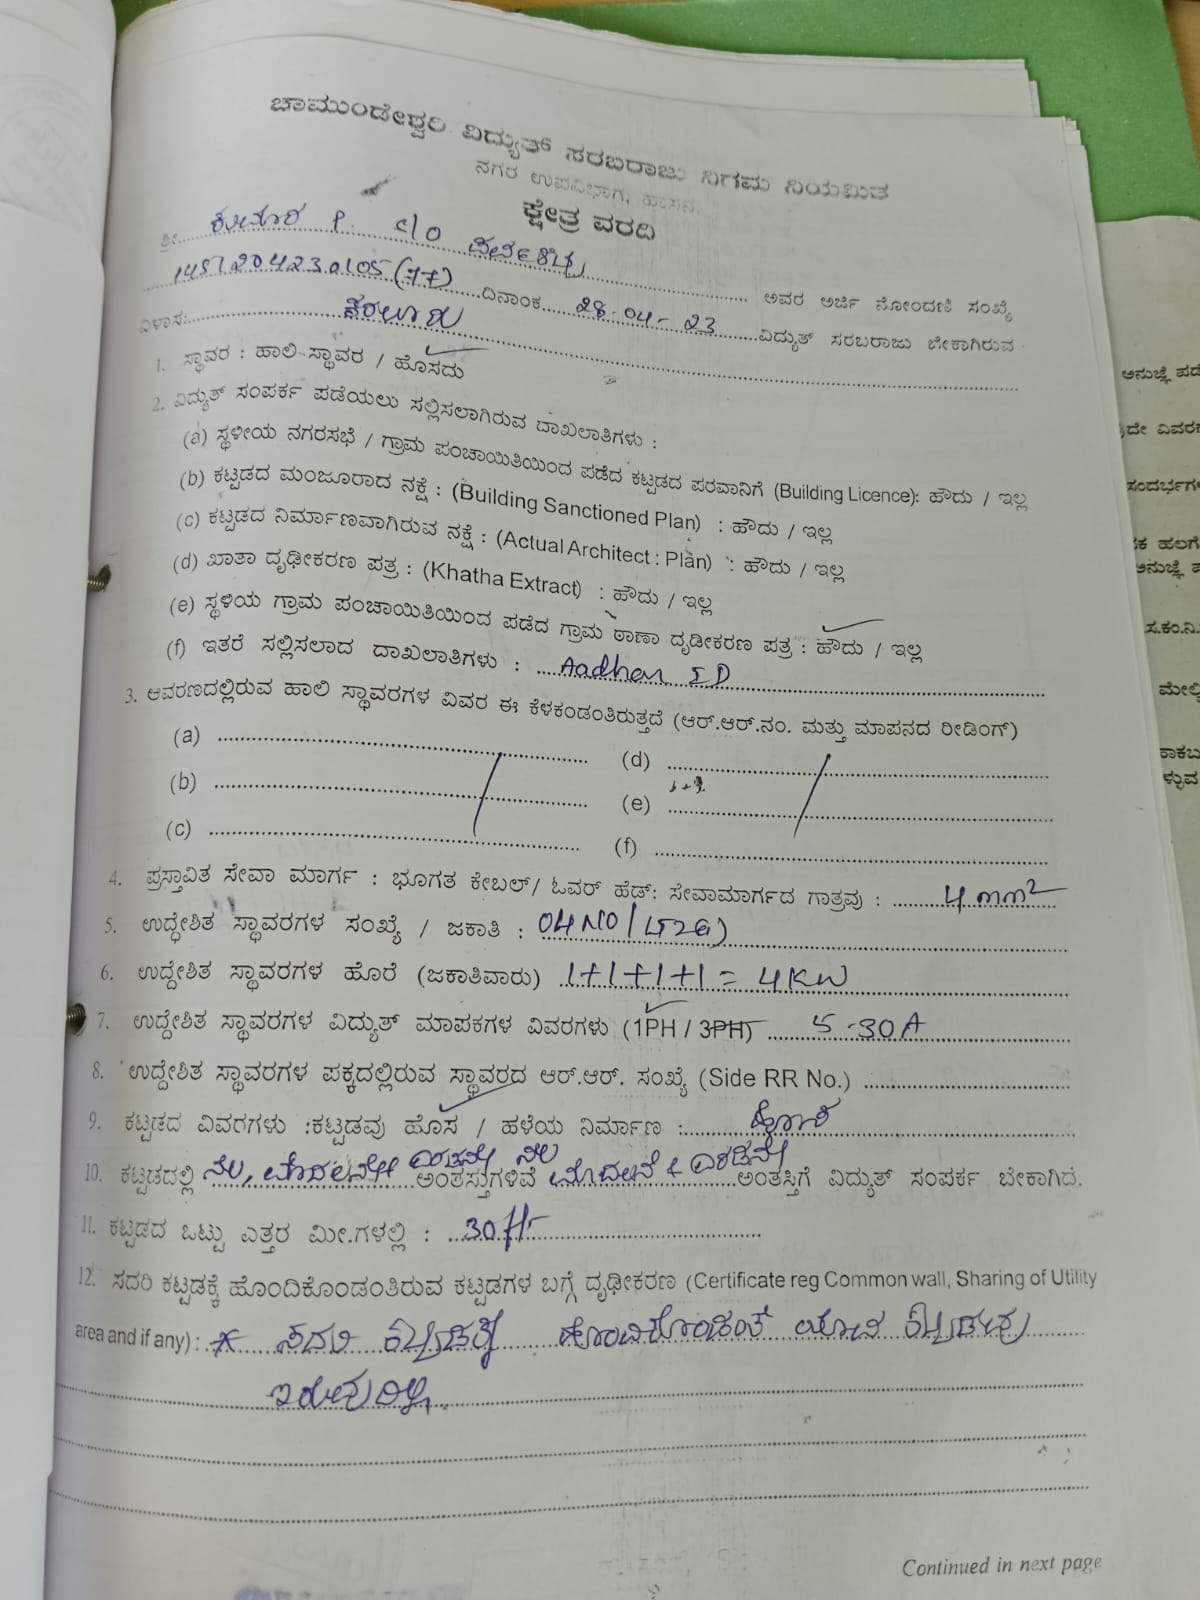 ಚಾಮುಂಡೇಶ್ವರಿ ವಿದ್ಯುತ್ ಸರಬರಾಜು ನಿಗಮ ನಿಯಮಿತ
ನಗರ ಉಪವಿಭಾಗ, ಹಾಸನ.
ಕ್ಷೇತ್ರ ವರದಿ
ಶ್ರೀ. ಕುಮಾರ P. c/o
ಅವರ ಅರ್ಜಿ ನೋಂದಣಿ ಸಂಖ್ಯೆ
ದಿನಾಂಕ 28-04-23 ವಿದ್ಯುತ್ ಸರಬರಾಜು ಬೇಕಾಗಿರುವ
ವಿಳಾಸ:
1. ಸ್ಥಾವರ : ಹಾಲಿ-ಸ್ಥಾವರ / ಹೊಸದು
2. ವಿದ್ಯುತ್ ಸಂಪರ್ಕ ಪಡೆಯಲು ಸಲ್ಲಿಸಲಾಗಿರುವ ದಾಖಲಾತಿಗಳು :
(a) ಸ್ಥಳೀಯ ನಗರಸಭೆ / ಗ್ರಾಮ ಪಂಚಾಯಿತಿಯಿಂದ ಪಡೆದ ಕಟ್ಟಡದ ಪರವಾನಿಗೆ (Building Licence): ಹೌದು / ಇಲ್ಲ
(b) ಕಟ್ಟಡದ ಮಂಜೂರಾದ ನಕ್ಷೆ : (Building Sanctioned Plan) : ಹೌದು / ಇಲ್ಲ
(c) ಕಟ್ಟಡದ ನಿರ್ಮಾಣವಾಗಿರುವ ನಕ್ಷೆ : (Actual Architect : Plan) : ಹೌದು / ಇಲ್ಲ
(d) ಖಾತಾ ದೃಢೀಕರಣ ಪತ್ರ : (Khatha Extract) : ಹೌದು / ಇಲ್ಲ
(e) ಸ್ಥಳಿಯ ಗ್ರಾಮ ಪಂಚಾಯಿತಿಯಿಂದ ಪಡೆದ ಗ್ರಾಮ ಠಾಣಾ ದೃಢೀಕರಣ ಪತ್ರ : ಹೌದು / ಇಲ್ಲ
(f) ಇತರೆ ಸಲ್ಲಿಸಲಾದ ದಾಖಲಾತಿಗಳು : Aadhar ID
3. ಆವರಣದಲ್ಲಿರುವ ಹಾಲಿ ಸ್ಥಾವರಗಳ ವಿವರ ಈ ಕೆಳಕಂಡಂತಿರುತ್ತದೆ (ಆರ್.ಆರ್.ನಂ. ಮತ್ತು ಮಾಪನದ ರೀಡಿಂಗ್)
(a) (d)
(b) (e)
(c) (f)
4. ಪ್ರಸ್ತಾವಿತ ಸೇವಾ ಮಾರ್ಗ : ಭೂಗತ ಕೇಬಲ್/ ಓವರ್ ಹೆಡ್: ಸೇವಾಮಾರ್ಗದ ಗಾತ್ರವು : 4 mm²
5. ಉದ್ದೇಶಿತ ಸ್ಥಾವರಗಳ ಸಂಖ್ಯೆ / ಜಕಾತಿ : 04 NO
6. ಉದ್ದೇಶಿತ ಸ್ಥಾವರಗಳ ಹೊರೆ (ಜಕಾತಿವಾರು) 1+1+1+1 = 4KW
7. ಉದ್ದೇಶಿತ ಸ್ಥಾವರಗಳ ವಿದ್ಯುತ್ ಮಾಪಕಗಳ ವಿವರಗಳು (1PH / 3PH) 5-30A
8. ಉದ್ದೇಶಿತ ಸ್ಥಾವರಗಳ ಪಕ್ಕದಲ್ಲಿರುವ ಸ್ಥಾವರದ ಆರ್.ಆರ್. ಸಂಖ್ಯೆ (Side RR No.)
9. ಕಟ್ಟಡದ ವಿವರಗಳು :ಕಟ್ಟಡವು ಹೊಸ / ಹಳೆಯ ನಿರ್ಮಾಣ : ಹೊಸ
10. ಕಟ್ಟಡದಲ್ಲಿ ನೆಲ, ಮೊದಲನೇ ಎರಡನೇ ಅಂತಸ್ತುಗಳಿವೆ ನೆಲ ಮೊದಲನೆ & ಎರಡನೇ ಅಂತಸ್ತಿಗೆ ವಿದ್ಯುತ್ ಸಂಪರ್ಕ ಬೇಕಾಗಿದೆ.
11. ಕಟ್ಟಡದ ಒಟ್ಟು ಎತ್ತರ ಮೀ.ಗಳಲ್ಲಿ : 30 ft
12. ಸದರಿ ಕಟ್ಟಡಕ್ಕೆ ಹೊಂದಿಕೊಂಡಂತಿರುವ ಕಟ್ಟಡಗಳ ಬಗ್ಗೆ ದೃಢೀಕರಣ (Certificate reg Common wall, Sharing of Utility
area and if any) : * ಸದರಿ ಕಟ್ಟಡಕ್ಕೆ ಹೊಂದಿಕೊಂಡಂತೆ ಯಾವ ಕಟ್ಟಡವು
ಇರುವುದಿಲ್ಲ.
Continued in next page